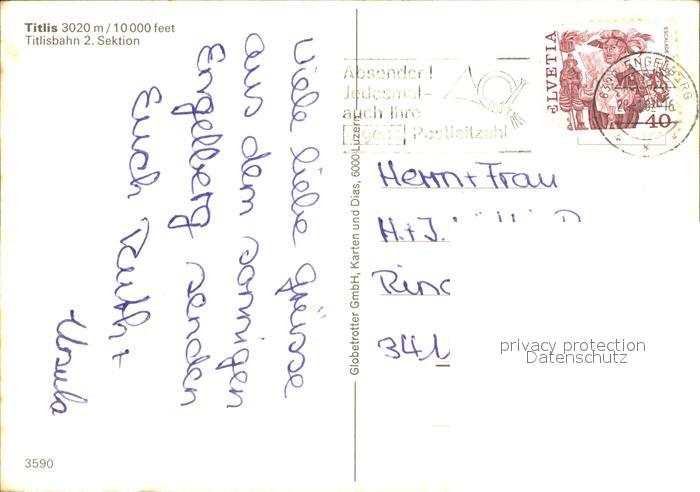 Titlis 3020 m / 10 000 feet
Titlisbahn 2. Sektion
Viele liebe Grüsse
aus dem sonnigen
Engelberg senden
Euch Ruth +
Ursula
3590
Globetrotter GmbH, Karten und Dias, 6000 Luzern
Absender!
Jedesmal-
auch Ihre
eigene Postleitzahl
HELVETIA
ESCALADE
40
6390 ENGELBERG
Herrn + Frau
H. + J.
341
privacy protection
Datenschutz